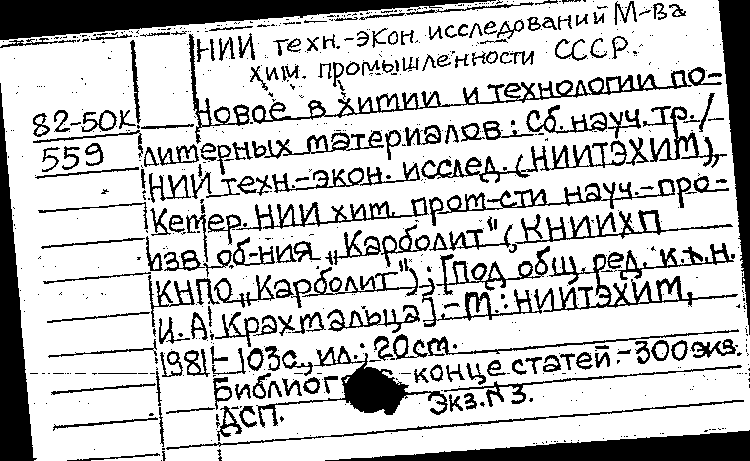 НИИ техн.-экон. исследований М-ва
хим. промышленности СССР.
82-50к Новое в химии и технологии по-
559 лимерных материалов: Сб. науч. тр./
НИИ техн.-экон. исслед. (НИИТЭХИМ),
Кемер. НИИ хим. пром-сти науч.-про-
изв. об-ния „Карболит" (КНИИХП
КНПО „Карболит"); [Под общ. ред. к.х.н.
И.А. Крахмальца].- М.: НИИТЭХИМ,
1981 - 103с., ил.; 20см.
конце статей.- 300экз.
ДСП. Экз.N 3.